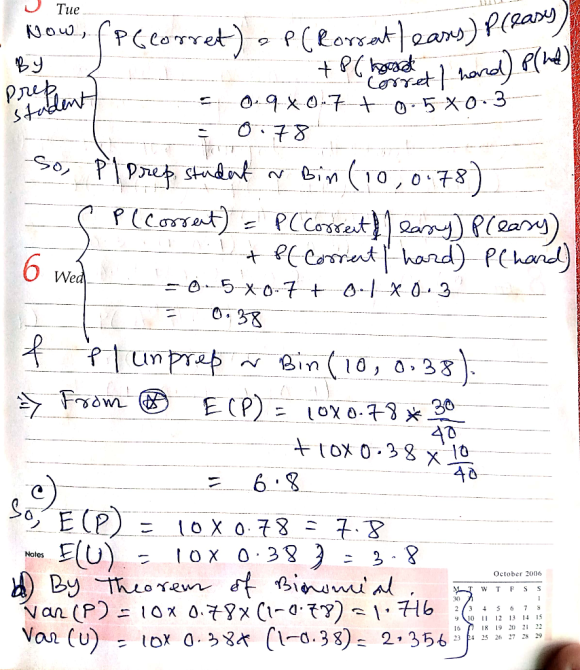 Tue
Now, P(Corret) = P(Corret | easy) P(easy)
By
Prep
student
+ P(Corret | hard) P(hd)
= 0.9 x 0.7 + 0.5 x 0.3
= 0.78
So, P | Prep. student ~ Bin (10, 0.78)
P(Correct) = P(Correct | easy) P(easy)
+ P(Correct | hard) P(hard)
6 Wed
= 0.5 x 0.7 + 0.1 x 0.3
= 0.38
& P | unprep ~ Bin (10, 0.38).
⇒ From ⊛ E(P) = 10x0.78 x 30/40
+ 10x 0.38 x 10/40
= 6.8
c)
So, E(P) = 10 x 0.78 = 7.8
Notes E(U) = 10 x 0.38 = 3.8
d) By Theorem of Binomial.
Var (P) = 10x 0.78x(1-0.78) = 1.716
Var (U) = 10x 0.38x (1-0.38) = 2.356
October 2006
M T W T F S S
30 1
2 3 4 5 6 7 8
9 10 11 12 13 14 15
16 17 18 19 20 21 22
23 24 25 26 27 28 29